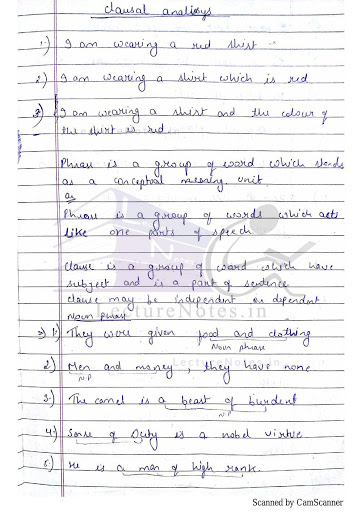 clausal analisys
1) I am wearing a red shirt
2) I am wearing a shirt which is red
3) I am wearing a shirt and the colour of
the shirt is red.
Phrase is a group of word which stands
as a conceptual meaning unit.
or
Phrase is a group of words which acts
like one parts of speech
Clause is a group of word which have
subject and is a part of sentence
clause may be independent or dependent
Noun phrase
3) 1) They were given food and clothing
Noun phrase
2) Men and money, they have none
N.P
3) The camel is a beast of burdent
N.P
4) Sense of Duty is a nobel virtue
5) He is a man of high rank.
LectureNotes.in
LectureNotes.in
Scanned by CamScanner